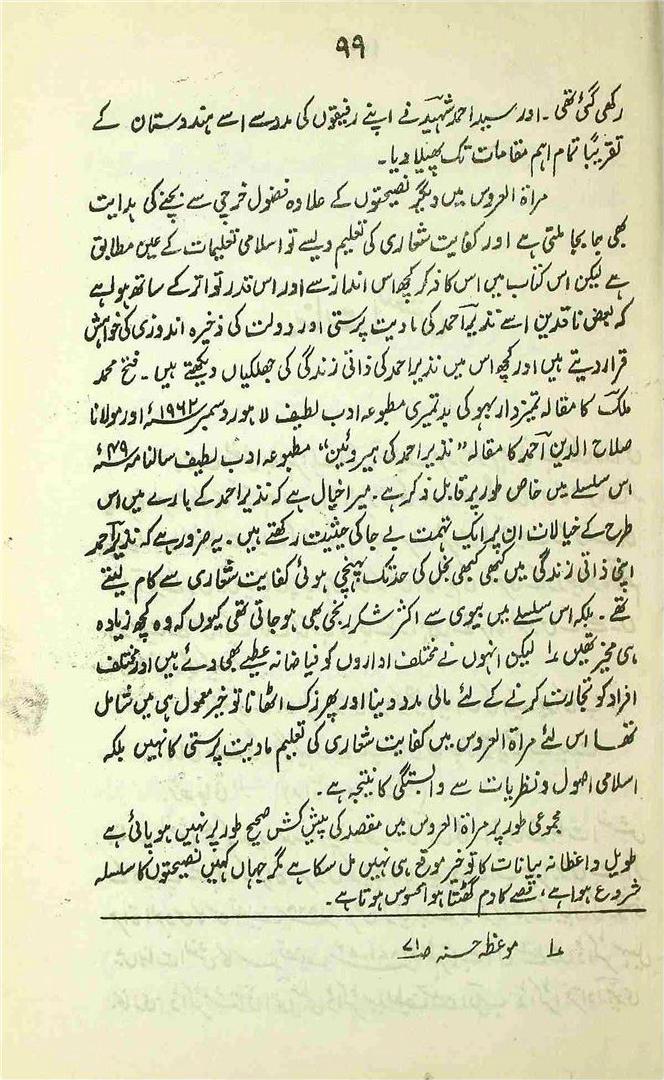 ۹۹
رکھی گئی تھی ۔ اور سید احمد شہیدؒ نے اپنے رفیقوں کی مدد سے اسے ہندوستان کے
تقریباً تمام اہم مقامات تک پھیلا دیا ۔
مراۃ العروس میں دیگر نصیحتوں کے علاوہ فضول خرچی سے بچنے کی ہدایت
بھی جا بجا ملتی ہے اور کفایت شعاری کی تعلیم ویسے تو اسلامی تعلیمات کے عین مطابق
ہے لیکن اس کتاب میں اس کا ذکر کچھ اس انداز سے اور اس قدر تواتر کے ساتھ ہوا ہے
کہ بعض ناقدین اسے نذیر احمد کی مادیت پرستی اور دولت کی ذخیرہ اندوزی کی خواہش
قرار دیتے ہیں اور کچھ اس میں نذیر احمد کی ذاتی زندگی کی جھلکیاں دیکھتے ہیں ۔ فتح محمد
ملک کا مقالہ تمیزدار بہو کی بدتمیزی مطبوعہ ادب لطیف لاہور دسمبر ۱۹۶۲ء اور مولانا
صلاح الدین احمد کا مقالہ " نذیر احمد کی ہیروئین" مطبوعہ ادب لطیف سالنامہ ۴۹ء
اس سلسلے میں خاص طور پر قابل ذکر ہے ۔ میرا خیال ہے کہ نذیر احمد کے بارے میں اس
طرح کے خیالات ان پر ایک تہمت بے جا کی حیثیت رکھتے ہیں ۔ یہ ضرور ہے کہ نذیر احمد
اپنی ذاتی زندگی میں کبھی کبھی بخل کی حد تک پہنچی ہوئی کفایت شعاری سے کام لیتے
تھے ۔ بلکہ اس سلسلے میں بیوی سے اکثر شکر رنجی بھی ہو جاتی تھی کیوں کہ وہ کچھ زیادہ
ہی مخیر تھیں ؎۱ لیکن انہوں نے مختلف اداروں کو فیاضانہ عطیے بھی دئے ہیں اور مختلف
افراد کو تجارت کرنے کے لئے مالی مدد دینا اور پھر زک اٹھانا تو خیر معمول ہی میں شامل
تھا اس لئے مراۃ العروس میں کفایت شعاری کی تعلیم مادیت پرستی کا نہیں بلکہ
اسلامی اصول و نظریات سے وابستگی کا نتیجہ ہے ۔
مجموعی طور پر مراۃ العروس میں مقصد کی پیش کش صحیح طور پر نہیں ہو پائی ہے
طویل واعظانہ بیانات کا تو خیر موقع ہی نہیں مل سکا ہے مگر جہاں کہیں نصیحتوں کا سلسلہ
شروع ہوا ہے ، قصے کا دم گھٹتا ہوا محسوس ہوتا ہے ۔
؎۱ موعظہ حسنہ ص ۷۱